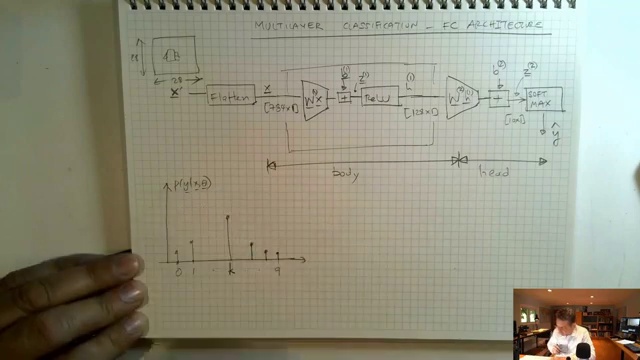 MULTILAYER CLASSIFICATION _ FC ARCHITECTURE
28
28
x' Flatten x [784x1] W⁽¹⁾x + b⁽¹⁾ z⁽¹⁾ ReLU h⁽¹⁾ [128x1] W⁽²⁾h⁽¹⁾ + b⁽²⁾ z⁽²⁾ [10x1] SOFT MAX
ŷ
body head
p(y|x,θ)
0 1 k 9